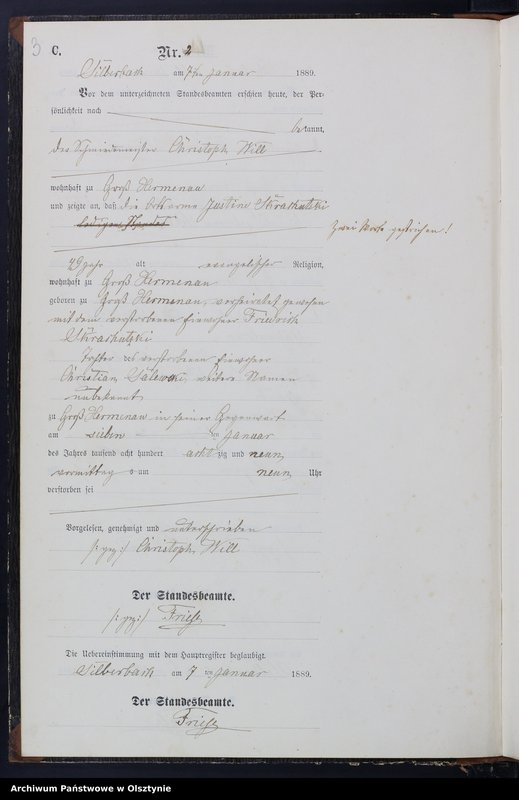 3
C.
Nr. 2
Silberbach am 7ten Januar 1889.
Vor dem unterzeichneten Standesbeamten erschien heute, der Per-
sönlichkeit nach
bekannt,
der Schmiedemeister Christoph Will
wohnhaft zu Groß Hermenau
und zeigte an, daß die Ortsarme Justine
zwei Worte gestrichen!
49 Jahr alt evangelischer Religion,
wohnhaft zu Groß Hermenau
geboren zu Groß Hermenau, verheiratet gewesen
mit dem verstorbenen Einwohner Friedrich
Tochter des verstorbenen Einwohner
Christian Salewski, weitere Namen
unbekannt
zu Groß Hermenau in seiner Gegenwart
am sieben ten Januar
des Jahres tausend acht hundert achtzig und neun,
vormittags um neun Uhr
verstorben sei
Vorgelesen, genehmigt und unterschrieben
/: gez :/ Christoph Will
Der Standesbeamte.
/: gez :/ Friese
Die Uebereinstimmung mit dem Hauptregister beglaubigt.
Silberbach am 7 ten Januar 1889.
Der Standesbeamte.
Friese
Archiwum Państwowe w Olsztynie